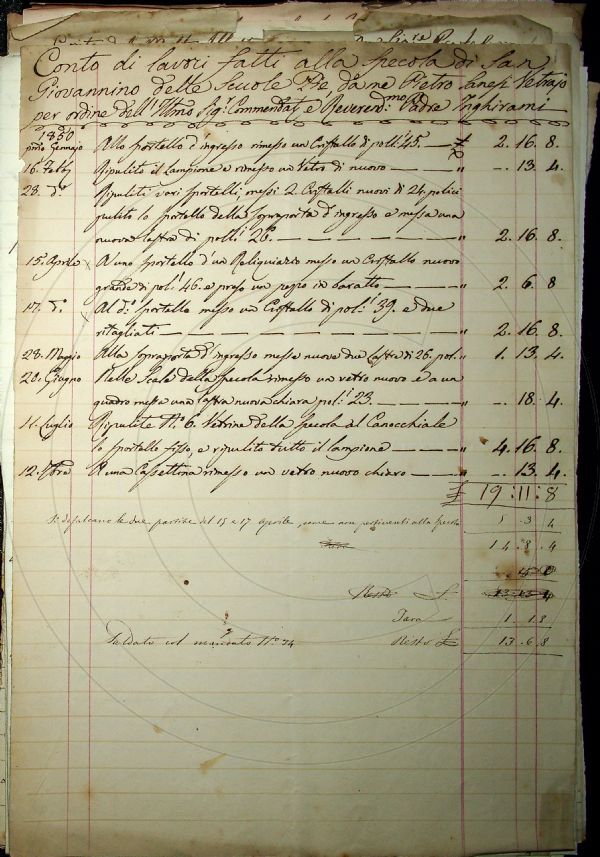 Conto di lavori fatti alla Specola di San
Giovannino delle Scuole Pie, da me Pietro Sanesi Vetrajo
per ordine dell' Illmo Sig.r Commendat.e e Reverend.mo Padre Inghirami
1850
primo Gennajo Allo sportello d'ingresso rimesso un Cristallo di poll.i 45. £ 2. 16. 8.
16. Febb. Ripulito il lampione e rimesso un Vetro di nuovo " -. 13. 4.
23. d.o Ripuliti vari sportelli; messi 2. Cristalli nuovi di 24. polici
pulito lo sportello della sopraporta d'ingresso e messa una
nuova lastra di polli 26. " 2. 16. 8.
15. Aprile A uno sportello d'un Reliquiario messo un Cristallo nuovo
grande di pol.i 46. e preso un pezzo in baratto " 2. 6. 8
17. d.o Al d.o Sportello messo un Cristallo di pol.i 39. e due
ritagliati " 2. 16. 8.
28. Maggio Alla sopraporta d'ingresso messe nuove due lastre di 26. pol. " 1. 13. 4.
20. Giugno Nelle Scale della Specola rimesso un vetro nuovo e a un
quadro messa una lastra nuova chiara pol.i 23. " -. 18. 4.
11. Luglio Ripulite N.o 6. Vetrine della Specola al Canocchiale
lo sportello fisso, e ripulito tutto il lampione " 4. 16. 8.
12. A una Cassettina rimesso un vetro nuovo chiaro " -. 13. 4.
£ 19: 11: 8
Si defalcano le due partite del 15 e 17 Aprile come non pertinenti alla Specola 5 3 4
14. 8. 4
Resto £ 13 13 4
Tara 1. 1. 8
Saldato col mandato N.o 74 Resto £ 13. 6. 8